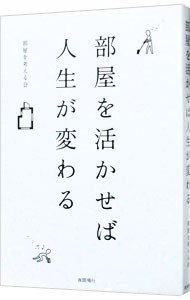 部屋を活かせば
人生が変わる
部屋を考える会
夜間飛行
部屋を活かせば人生が変わる
部屋を考える会